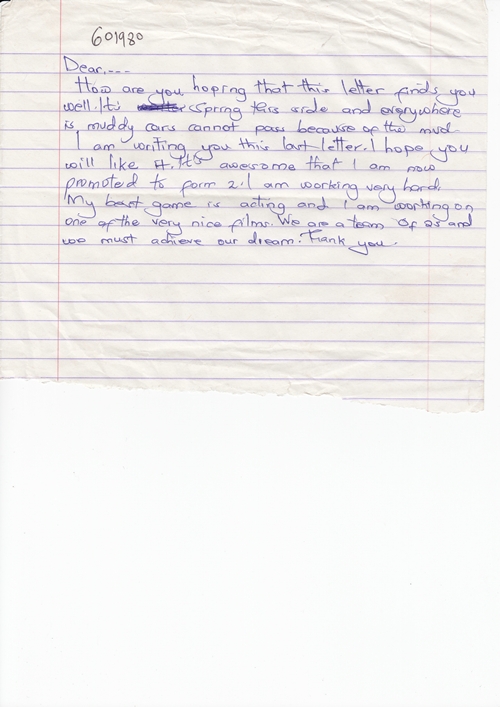 601980
Dear,----
How are you, hoping that this letter finds you
well. It's spring this side and everywhere
is muddy cars cannot pass because of the mud
I am writing you this last letter. I hope you
will like it. It's awesome that I am now
promoted to form 2. I am working very hard.
My best game is acting and I am working on
one of the very nice films. We are a team of 25 and
we must achieve our dream. Thank you.